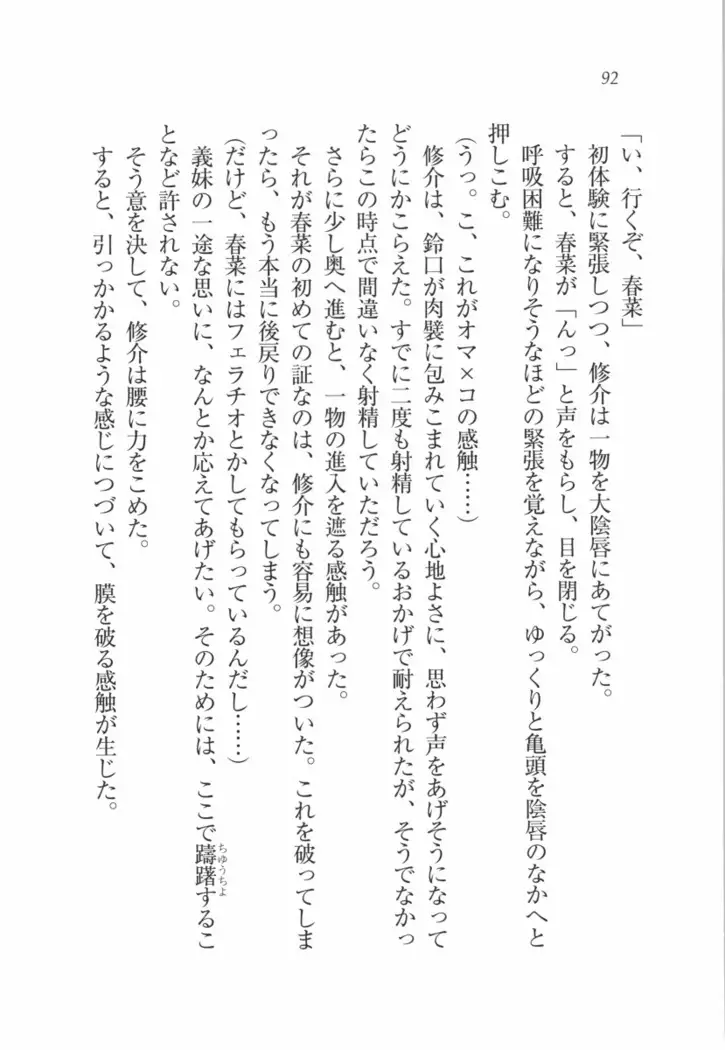 92
「い、行くぞ、春菜」
初体験に緊張しつつ、修介は一物を大陰唇にあてがった。
すると、春菜が「んっ」と声をもらし、目を閉じる。
呼吸困難になりそうなほどの緊張を覚えながら、ゆっくりと亀頭を陰唇のなかへと
押しこむ。
(うっ。こ、これがオマ×コの感触……)
修介は、鈴口が肉襞に包みこまれていく心地よさに、思わず声をあげそうになって
どうにかこらえた。すでに二度も射精しているおかげで耐えられたが、そうでなかっ
たらこの時点で間違いなく射精していただろう。
さらに少し奥へ進むと、一物の進入を遮る感触があった。
それが春菜の初めての証なのは、修介にも容易に想像がついた。これを破ってしま
ったら、もう本当に後戻りできなくなってしまう。
(だけど、春菜にはフェラチオとかしてもらっているんだし……)
義妹の一途な思いに、なんとか応えてあげたい。そのためには、ここで躊躇するこ
ちゅうちょ
となど許されない。
そう意を決して、修介は腰に力をこめた。
すると、引っかかるような感じにつづいて、膜を破る感触が生じた。